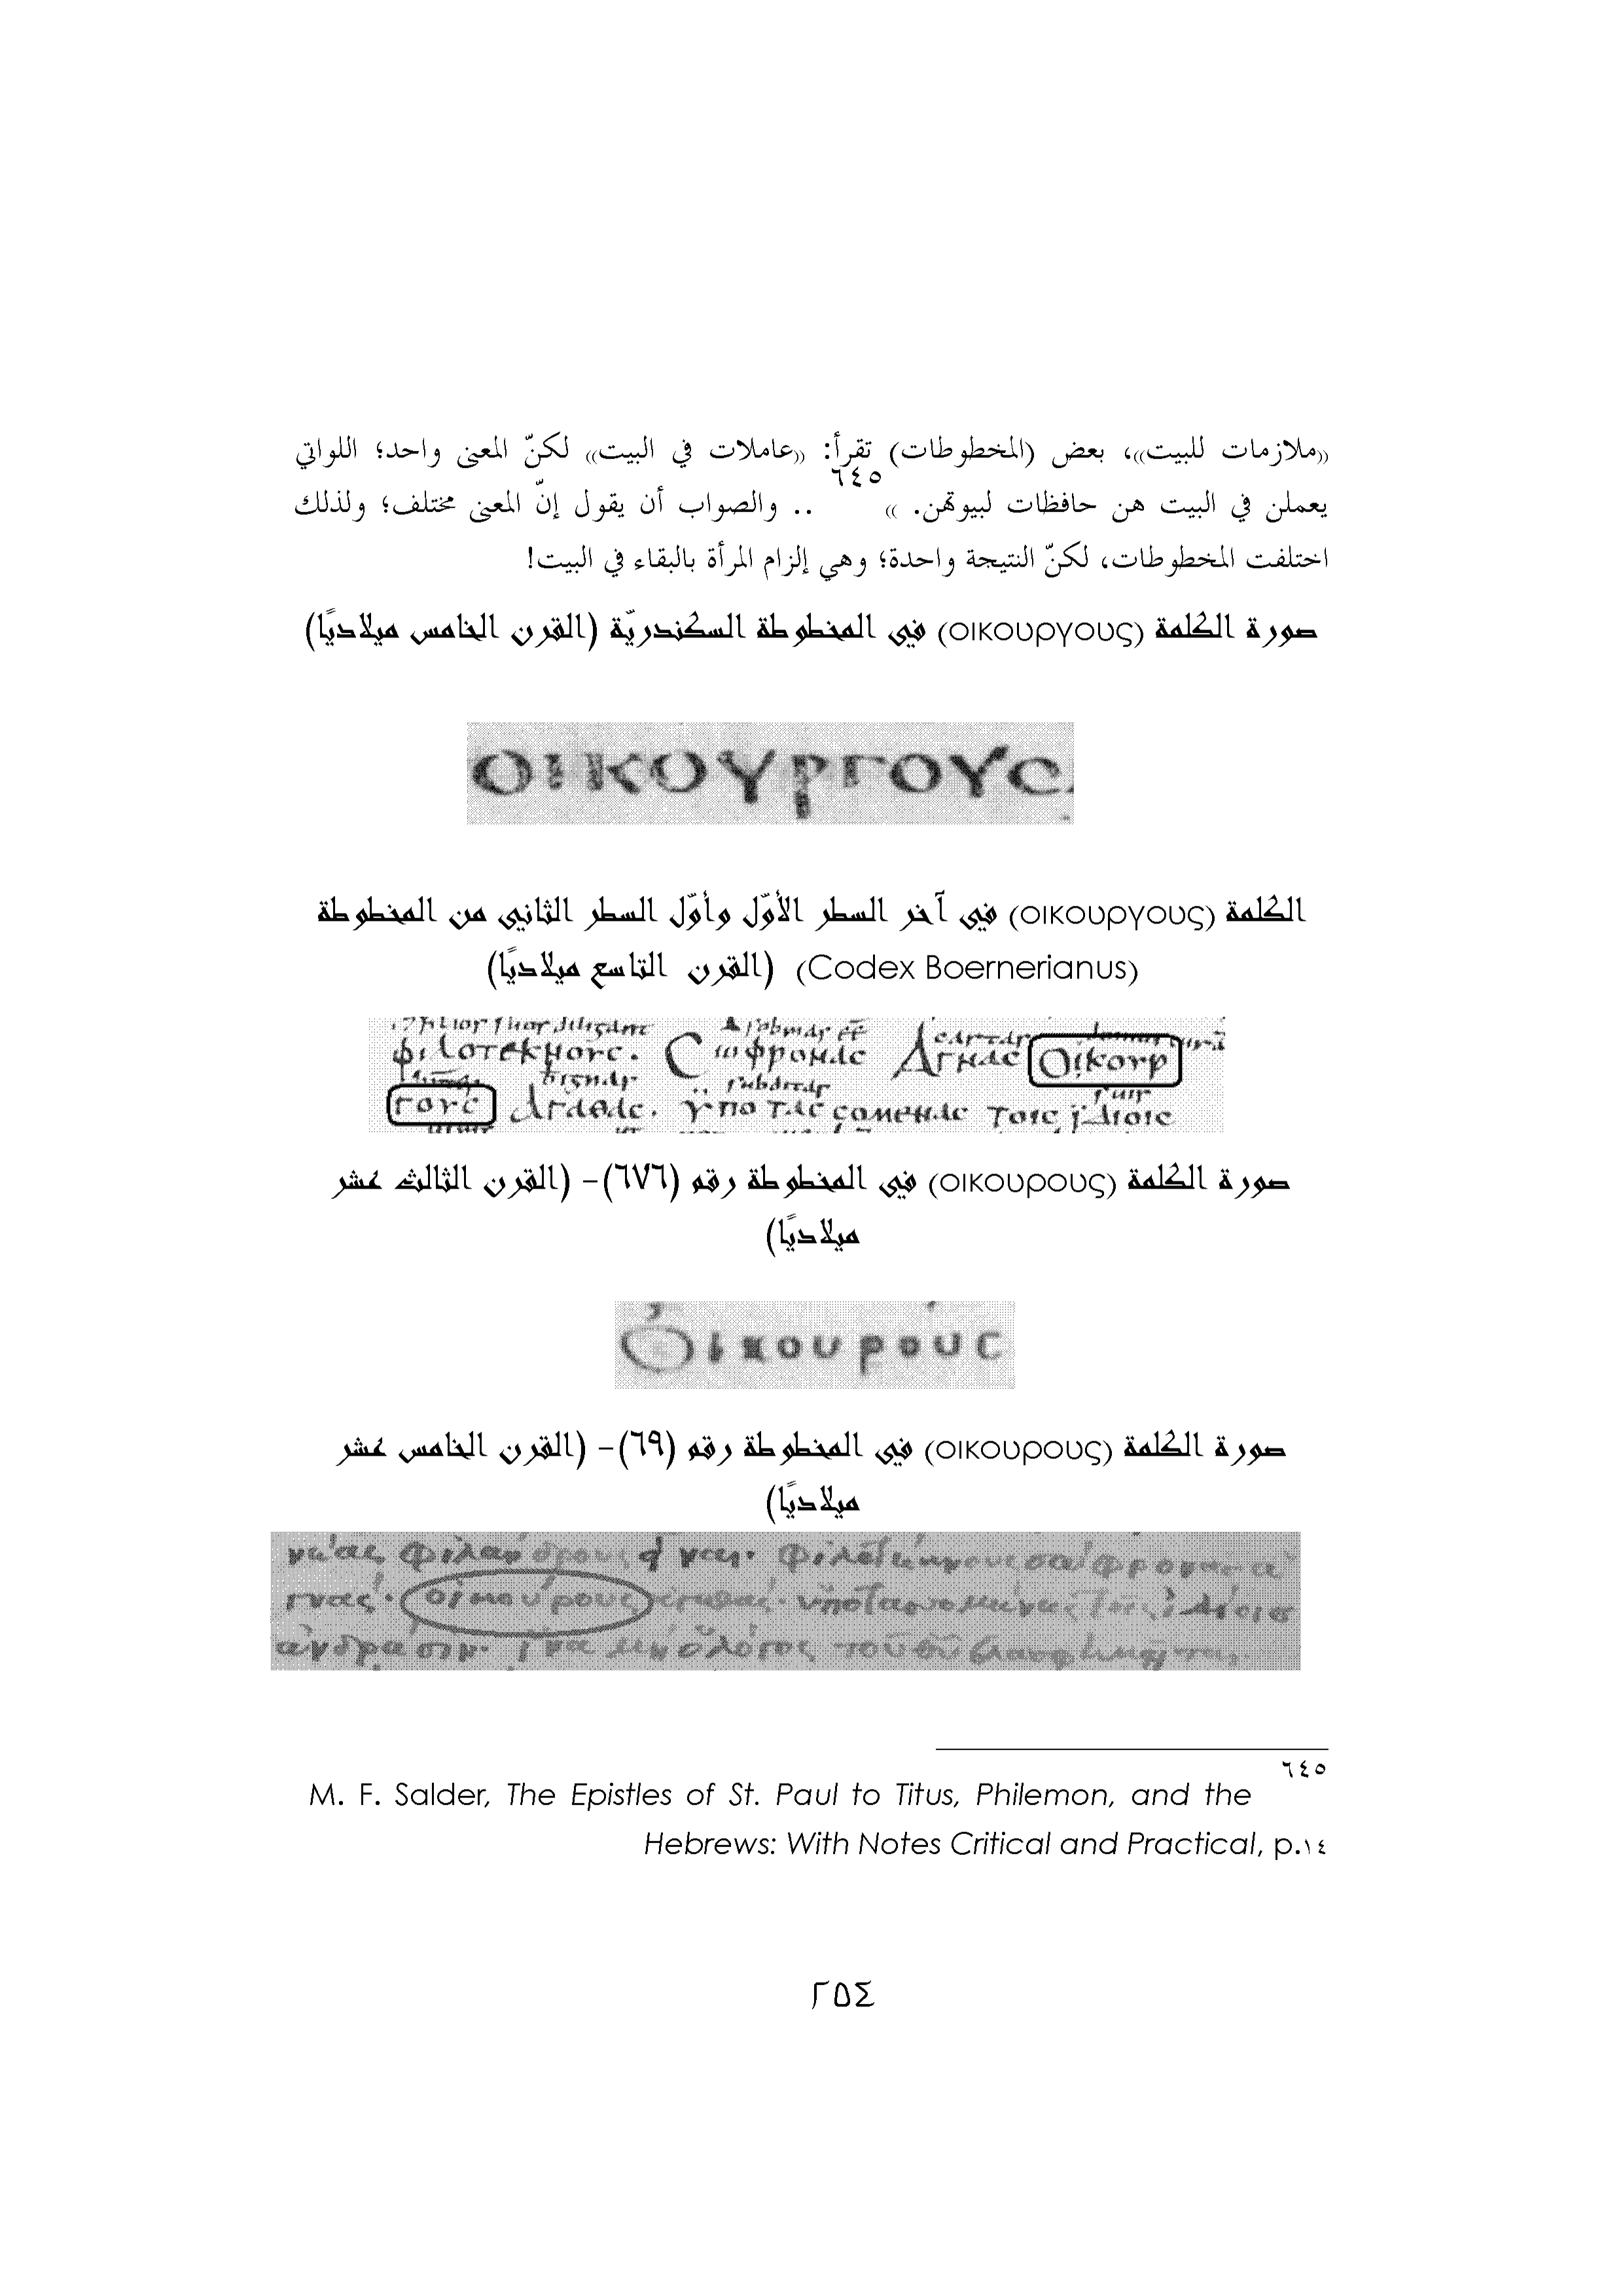 «ملازمات للبيت»، بعض (المخطوطات) تقرأ: «عاملات في البيت» لكنّ المعنى واحد؛ اللواتي
يعملن في البيت هن حافظات لبيوتهن. »٦٤٥ .. والصواب أن يقول إنّ المعنى مختلف؛ ولذلك
اختلفت المخطوطات، لكنّ النتيجة واحدة؛ وهي إلزام المرأة بالبقاء في البيت!
صورة الكلمة (οικουργους) في المخطوطة السكندريّة (القرن الخامس ميلاديًا)
ΟΙΚΟΥΡΓΟΥC
الكلمة (οικουργους) في آخر السطر الأوّل وأوّل السطر الثاني من المخطوطة
(Codex Boernerianus) (القرن التاسع ميلاديًا)
φιλοτεκνουc. Cωφροναc Αγναc Οικουρ
γουc Αγαθαc. ϋποταccομεναc τοιc ϊδιοιc
صورة الكلمة (οικουρους) في المخطوطة رقم (٦٧٦)- (القرن الثالث عشر
ميلاديًا)
Οικουρούς
صورة الكلمة (οικουρους) في المخطوطة رقم (٦٩)- (القرن الخامس عشر
ميلاديًا)
φιλάνδρους
γνάς· οἰκουρους
ἀνδράσιν· ἵνα μὴ ὁ λόγος τοῦ θῦ
٦٤٥
M. F. Salder, The Epistles of St. Paul to Titus, Philemon, and the
Hebrews: With Notes Critical and Practical, p.١٤
٢٥٤